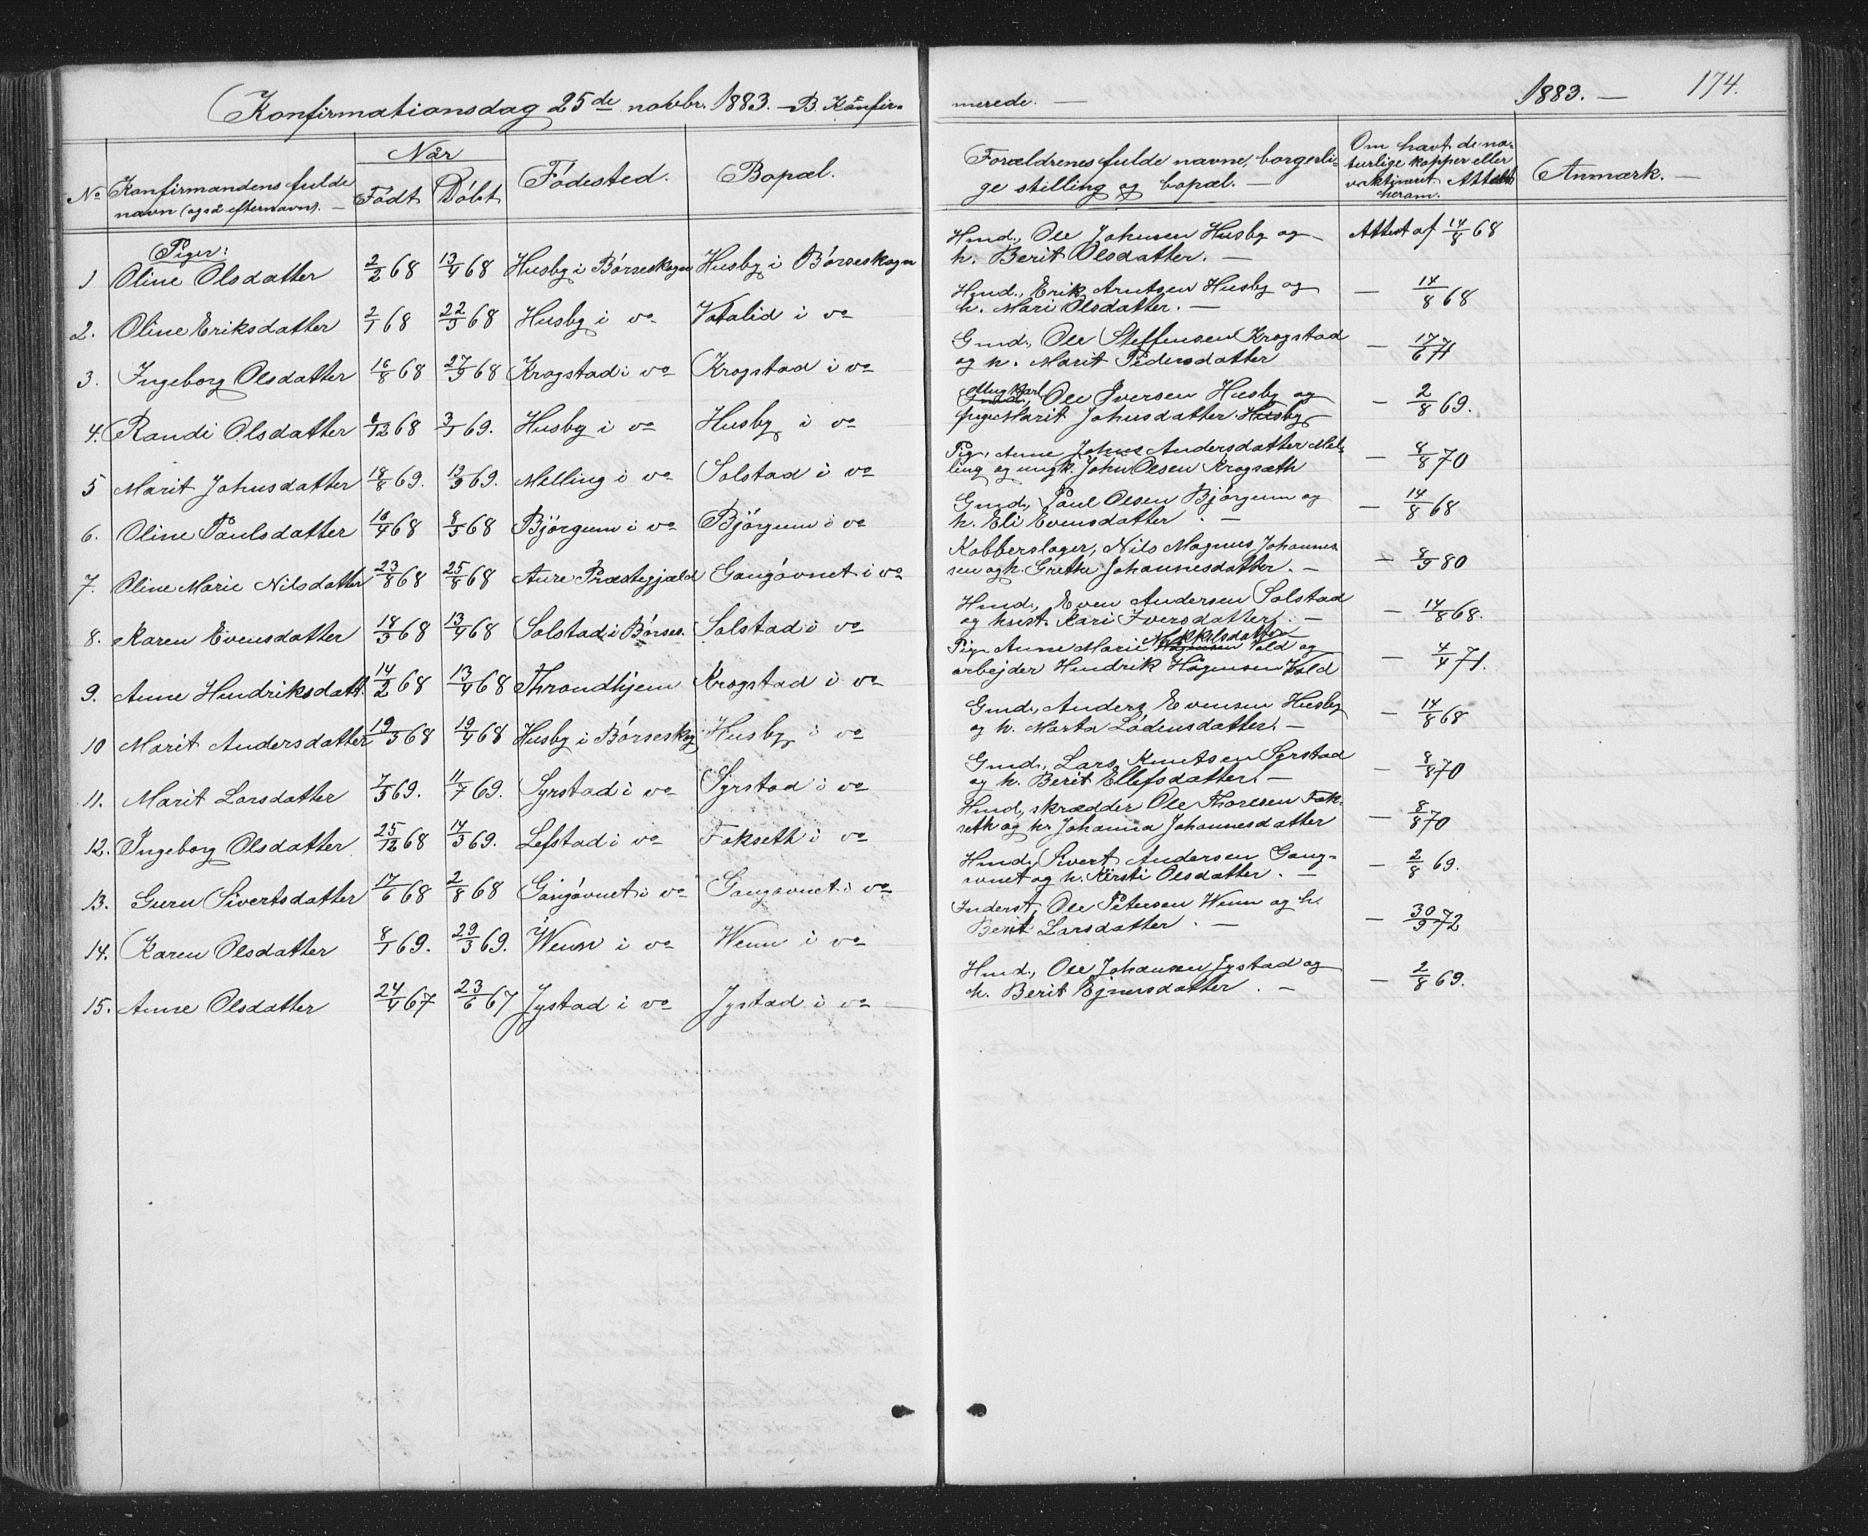 Konfirmationsdag 25de novbr. 1883. - B. Konfir- merede. - 1883. - 174.
No Konfirmandens fulde navn (også efternavn). - Når Født Døbt Fødested. Bopæl. Forældrenes fulde navne, borgerli-
ge stilling og bopæl. - Om havt de na-
turlige kopper eller
vaktineret. Attest
herom. Anmærk. -
Piger:
1 Oline Olsdatter 2/2 68 13/4 68 Husby i Børseskogn Husby i Børseskogn Hmd., Ole Johnsen Husby og
h. Berit Olsdatter. - Attest af 14/8 68
2. Oline Eriksdatter 2/1 68 22/3 68 Husby i do Vatalid i do Hmd., Erik Arntsen Husby og
h. Mari Olsdatter. - - 14/8 68
3. Ingeborg Olsdatter 16/8 68 27/9 68 Krogstad i do Krogstad i do Gmd., Ole Steffensen Krogstad
og h. Marit Pedersdatter - 17/6 71
4. Randi Olsdatter 6/12 68 3/1 69. Husby i do Husby i do Ungkarl, Ole Iversen Husby og
pige Marit Johnsdatter Husby - 2/8 69.
5 Marit Johnsdatter 18/8 69. 19/9 69. Melling i do Solstad i do Pig. Anne Andersdatter Mel-
ling og ungk. John Olsen Krogsæth - 8/8 70
6. Oline Paulsdatter 10/4 68 8/5 68 Bjørgum i do Bjørgum i do Gmd., Paul Olsen Bjørgum og
h. Eli Evensdatter. - - 14/8 68
7. Oline Marie Nilsdatter 23/8 68 25/8 68 Aure Præstegjæld Gangåvnet i do Kobberslager, Nils Magnus Johannes-
sen og h. Grethe Johannesdatter. - - 8/9 80
8. Karen Evensdatter 18/3 68 13/4 68 Solstad i Børses. Solstad i do Hmd., Even Andersen Solstad
og hust. Kari Iversdatter. - - 14/8 68.
9. Anne Hendriksdatt. 14/2 68 13/4 68 Throndhjem Krogstad i do Pig. Anne Marie Nekkilsdatter Vold og
arbejder Hendrik Høgensen Vold - 4/4 71.
10 Marit Andersdatter 19/3 68 19/4 68 Husby i Børseskog Husby i do Gmd., Anders Evensen Husby
og h. Marta Lødensdatter. - - 14/8 68
11. Marit Larsdatter 7/5 69. 11/7 69. Syrstad i do Syrstad i do Gmd., Lars Knutsen Syrstad
og h. Berit Ellefsdatter. - - 8/8 70
12. Ingeborg Olsdatter 25/12 68 14/3 69. Lefstad i do Fokseth i do Hmd, skrædder Ole Thoresen Fok-
seth og h. Johanna Johannesdatter - 8/8 70
13. Guru Sivertsdatter 17/6 68 2/8 68 Gangåvnet i do Gangåvnet i do Hmd, Sivert Andersen Gang-
åvnet og h. Kirsti Olsdatter. - - 2/8 69.
14. Karen Olsdatter 8/1 69. 29/3 69. Wenn i do Wenn i do Inderst, Ole Petersen Wenn og h.
Berit Larsdatter. - - 30/9 72
15. Anne Olsdatter 24/4 67 23/6 67 Jystad i do Jystad i do Hmd., Ole Johansen Jystad og
h. Berit Ejnersdatter. - - 2/8 69.